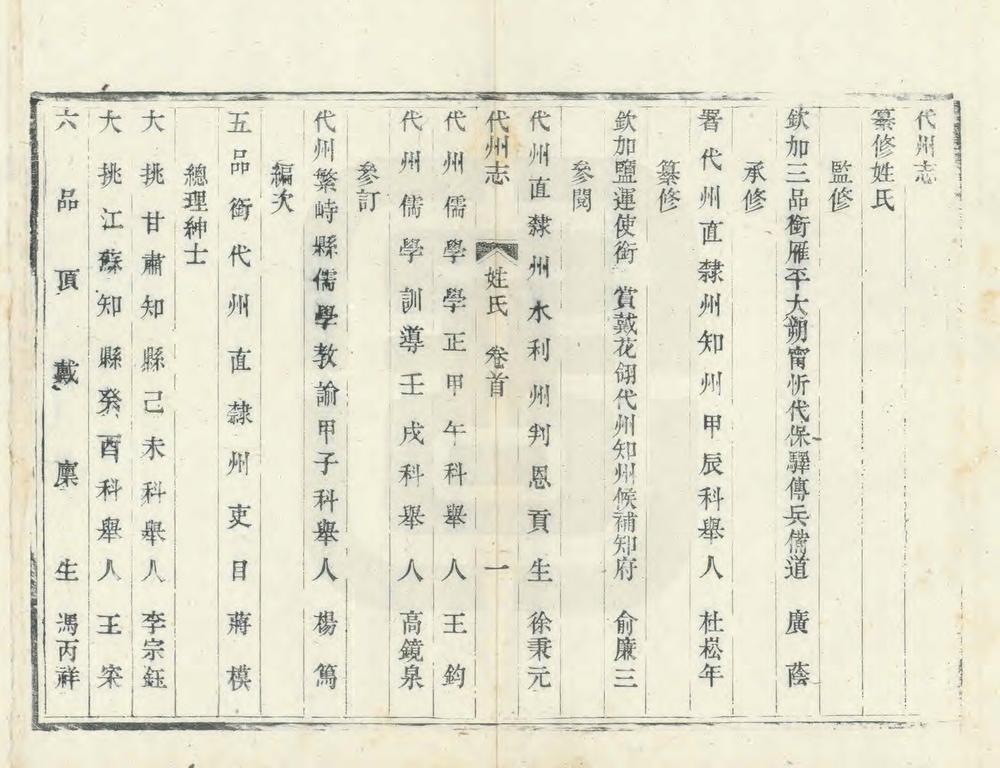 代州志
纂修姓氏
監修
欽加三品銜雁平大朔甯忻代保驛傳兵備道 廣蔭
承修
署代州直隸州知州甲辰科舉人 杜崧年
纂修
欽加鹽運使銜 賞戴花翎代州知州候補知府 俞廉三
參閱
代州直隸州水利州判恩貢生 徐秉元
代州志 姓氏 卷首 一
代州儒學學正甲午科舉人 王鈞
代州儒學訓導壬戌科舉人 高鏡泉
參訂
代州繁峙縣儒學教諭甲子科舉人 楊篤
編次
五品銜代州直隸州吏目 蔣模
總理紳士
大挑甘肅知縣己未科舉人 李宗鈺
大挑江蘇知縣癸酉科舉人 王寀
六品頂戴廩生 馮丙祥